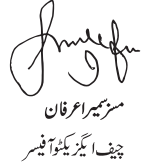 مسز سمیرا عرفان
چیف ایگزیکٹو آفیسر